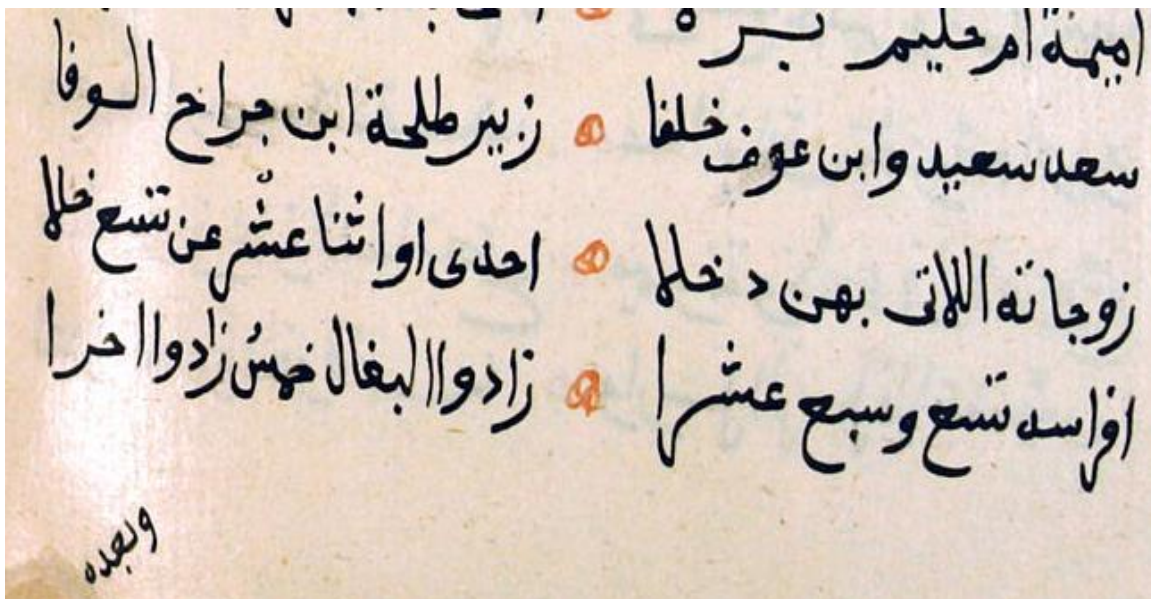 اميمة ام حليم بسره
سعد سعيد وابن عوف خلفا زبير طلحة ابن جراح الوفا
زوجاته اللاتى بهن دخلا احدى او اثنا عشر عن تسع خلا
افراسه تسع وسبع عشرا زادوا البغال خمس زادوا اخرا
وبعده